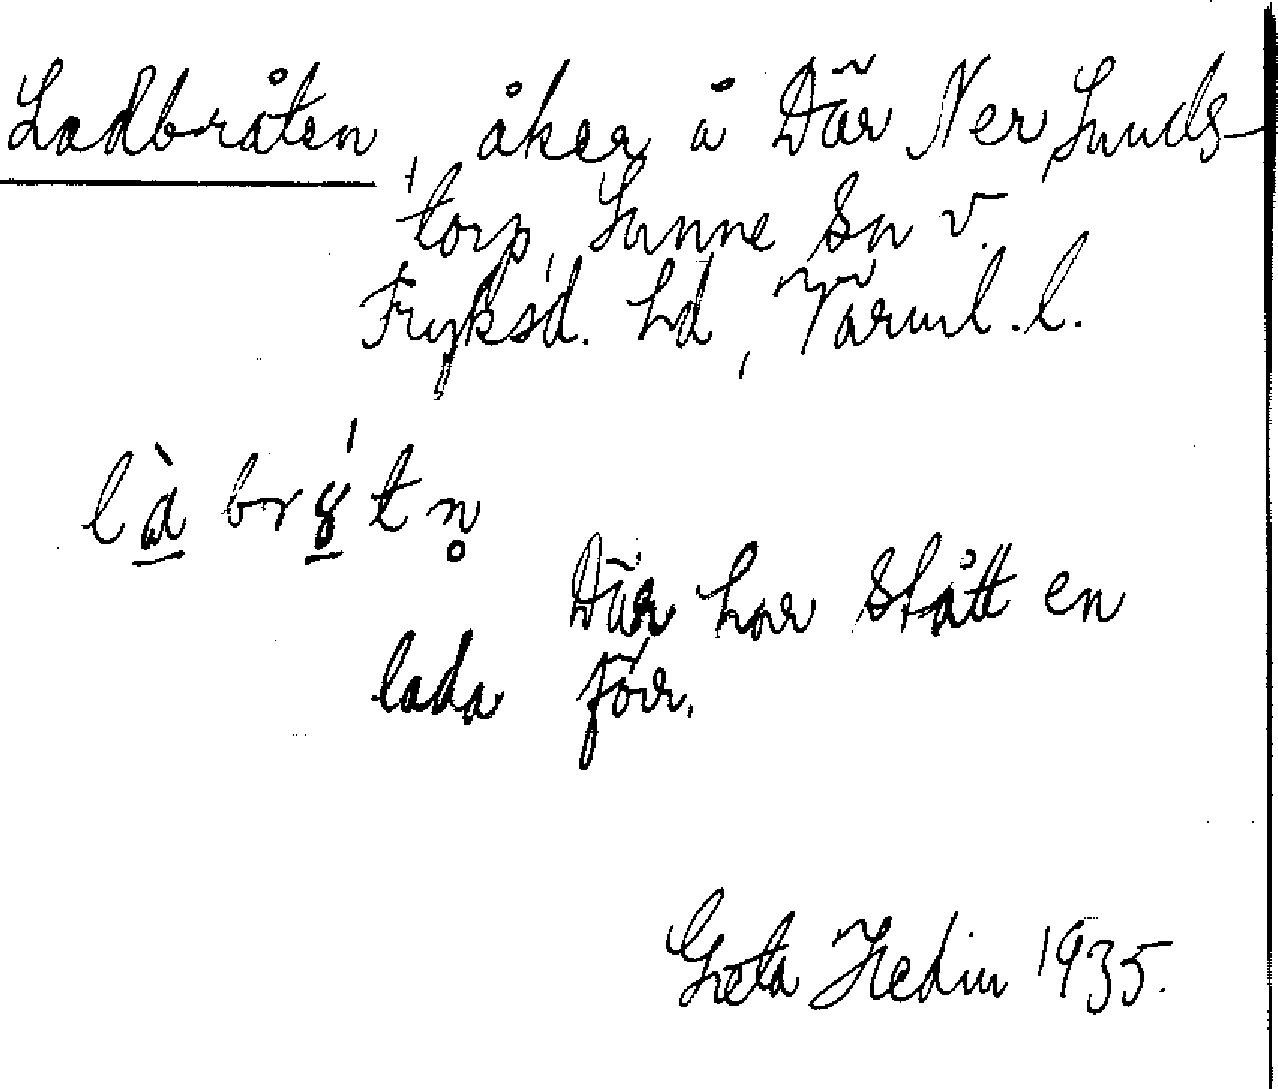 Ladbråten, åker å Där Ner Sunds-
torp, Sunne Sn v.
Fryksd. hd, Värml. l.
là brýtn̥
Där har stått en
lada förr.
Greta Hedin 1935.